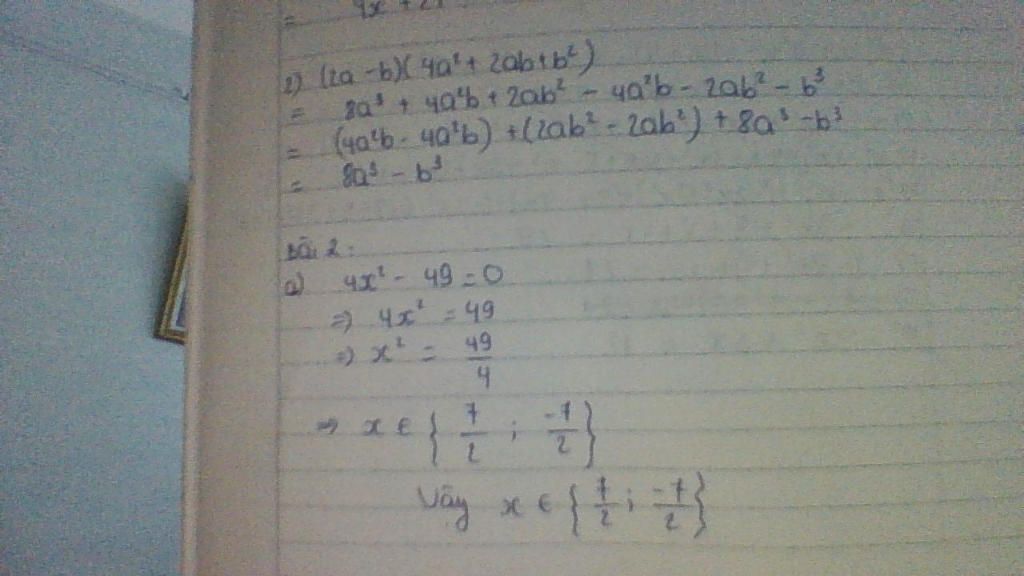 = 4x + 2
2) (2a - b)(4a² + 2ab + b²)
= 8a³ + 4a²b + 2ab² - 4a²b - 2ab² - b³
= (4a²b - 4a²b) + (2ab² - 2ab²) + 8a³ - b³
= 8a³ - b³
Bài 2:
a) 4x² - 49 = 0
=> 4x² = 49
=> x² = 49/4
=> x ∈ { 7/2 ; -7/2 }
Vậy x ∈ { 7/2 ; -7/2 }